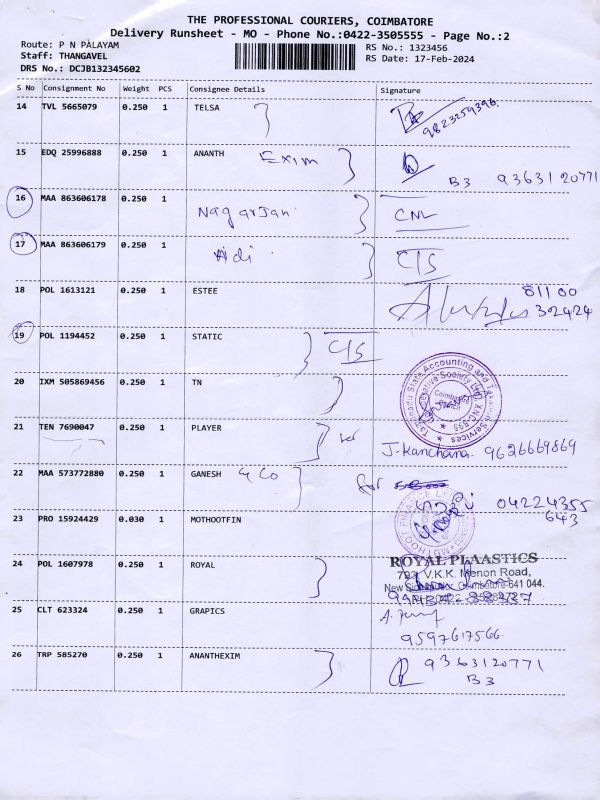 THE PROFESSIONAL COURIERS, COIMBATORE
Delivery Runsheet - MO - Phone No.:0422-3505555 - Page No.:2
Route: P N PALAYAM RS No.: 1323456
Staff: THANGAVEL RS Date: 17-Feb-2024
DRS No.: DCJB132345602
S No Consignment No Weight PCS Consignee Details Signature
14 TVL 5665079 0.250 1 TELSA
9823259396
15 EDQ 25996888 0.250 1 ANANTH Exim
B3 9363120771
16 MAA 863606178 0.250 1 Nagarjan CNL
17 MAA 863606179 0.250 1 Adi CIS
18 POL 1613121 0.250 1 ESTEE 81100
302424
19 POL 1194452 0.250 1 STATIC CIS
20 IXM 505869456 0.250 1 TN
Tamilnadu State Accounting and
Services
Coimbatore
21 TEN 7690047 0.250 1 PLAYER
J. Kanchana 9626669869
22 MAA 573772880 0.250 1 GANESH & Co for
04224355
643
23 PRO 15924429 0.030 1 MOTHOOTFIN
24 POL 1607978 0.250 1 ROYAL
ROYAL PLAASTICS
V.K.K. Menon Road,
Coimbatore-641 044.
25 CLT 623324 0.250 1 GRAPICS
9597617566
26 TRP 585270 0.250 1 ANANTHEXIM 9363120771
B3